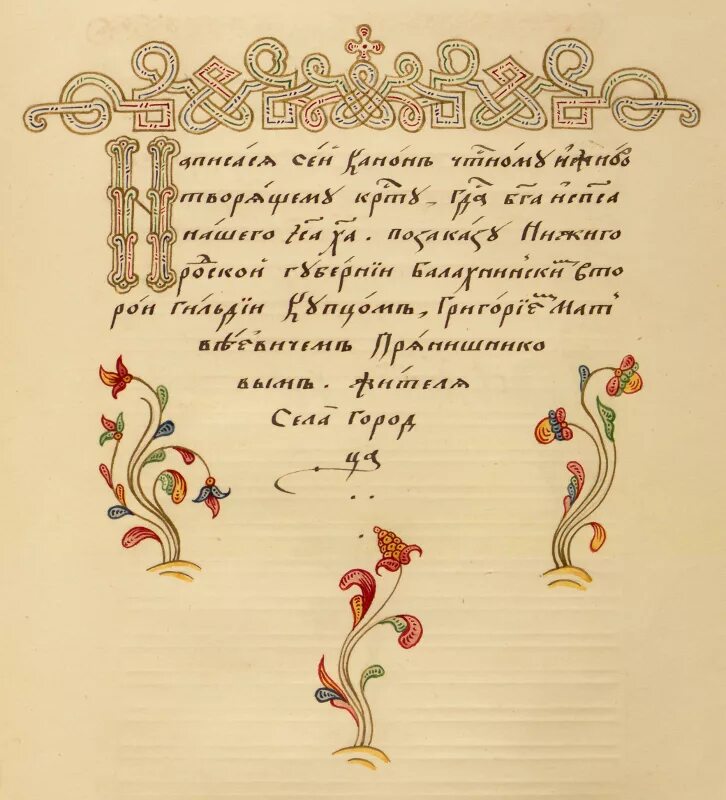 Написася сей Канонъ чтному и живо
творящему крту, Гда бга и спса
нашего Iса ха. по заказу Нижнго
родской губернiи Балахнински вто
рои гильдiи Купцомъ, Григорiе Мат
вѣевичемъ Прянишнико
вымъ. жителя
Села Город
ца